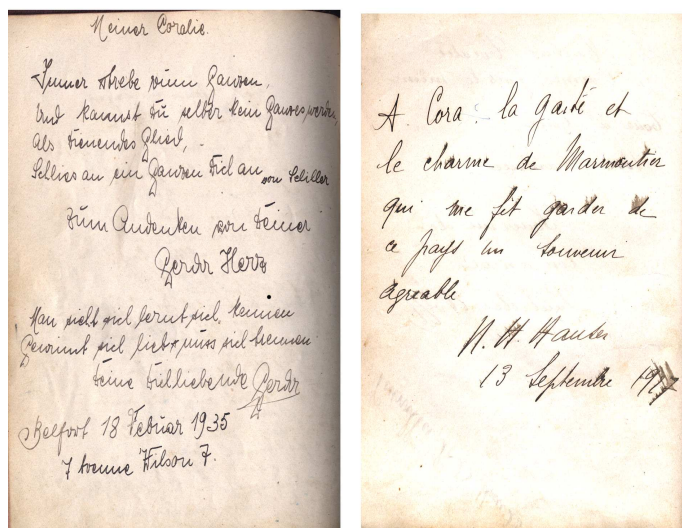 Meiner Coralie.
Immer strebe zum Ganzen,
Und kannst du selber kein Ganzes werden,
Als dienendes Glied,
Schlies an ein Ganzes dich an von Schiller
Zum Andenken von deiner
Gerdr Herz
Man sieht sich lernt sich kennen
Gewinnt sich lieb muss sich trennen
deine dich liebende Gerdr
Belfort 18 Februar 1935
7 Avenue Wilson 7.
A Cora : la gaité et
le charme de Marmoutier
qui me fit garder de
ce pays un souvenir
agréable
H. Hauser
13 Septembre